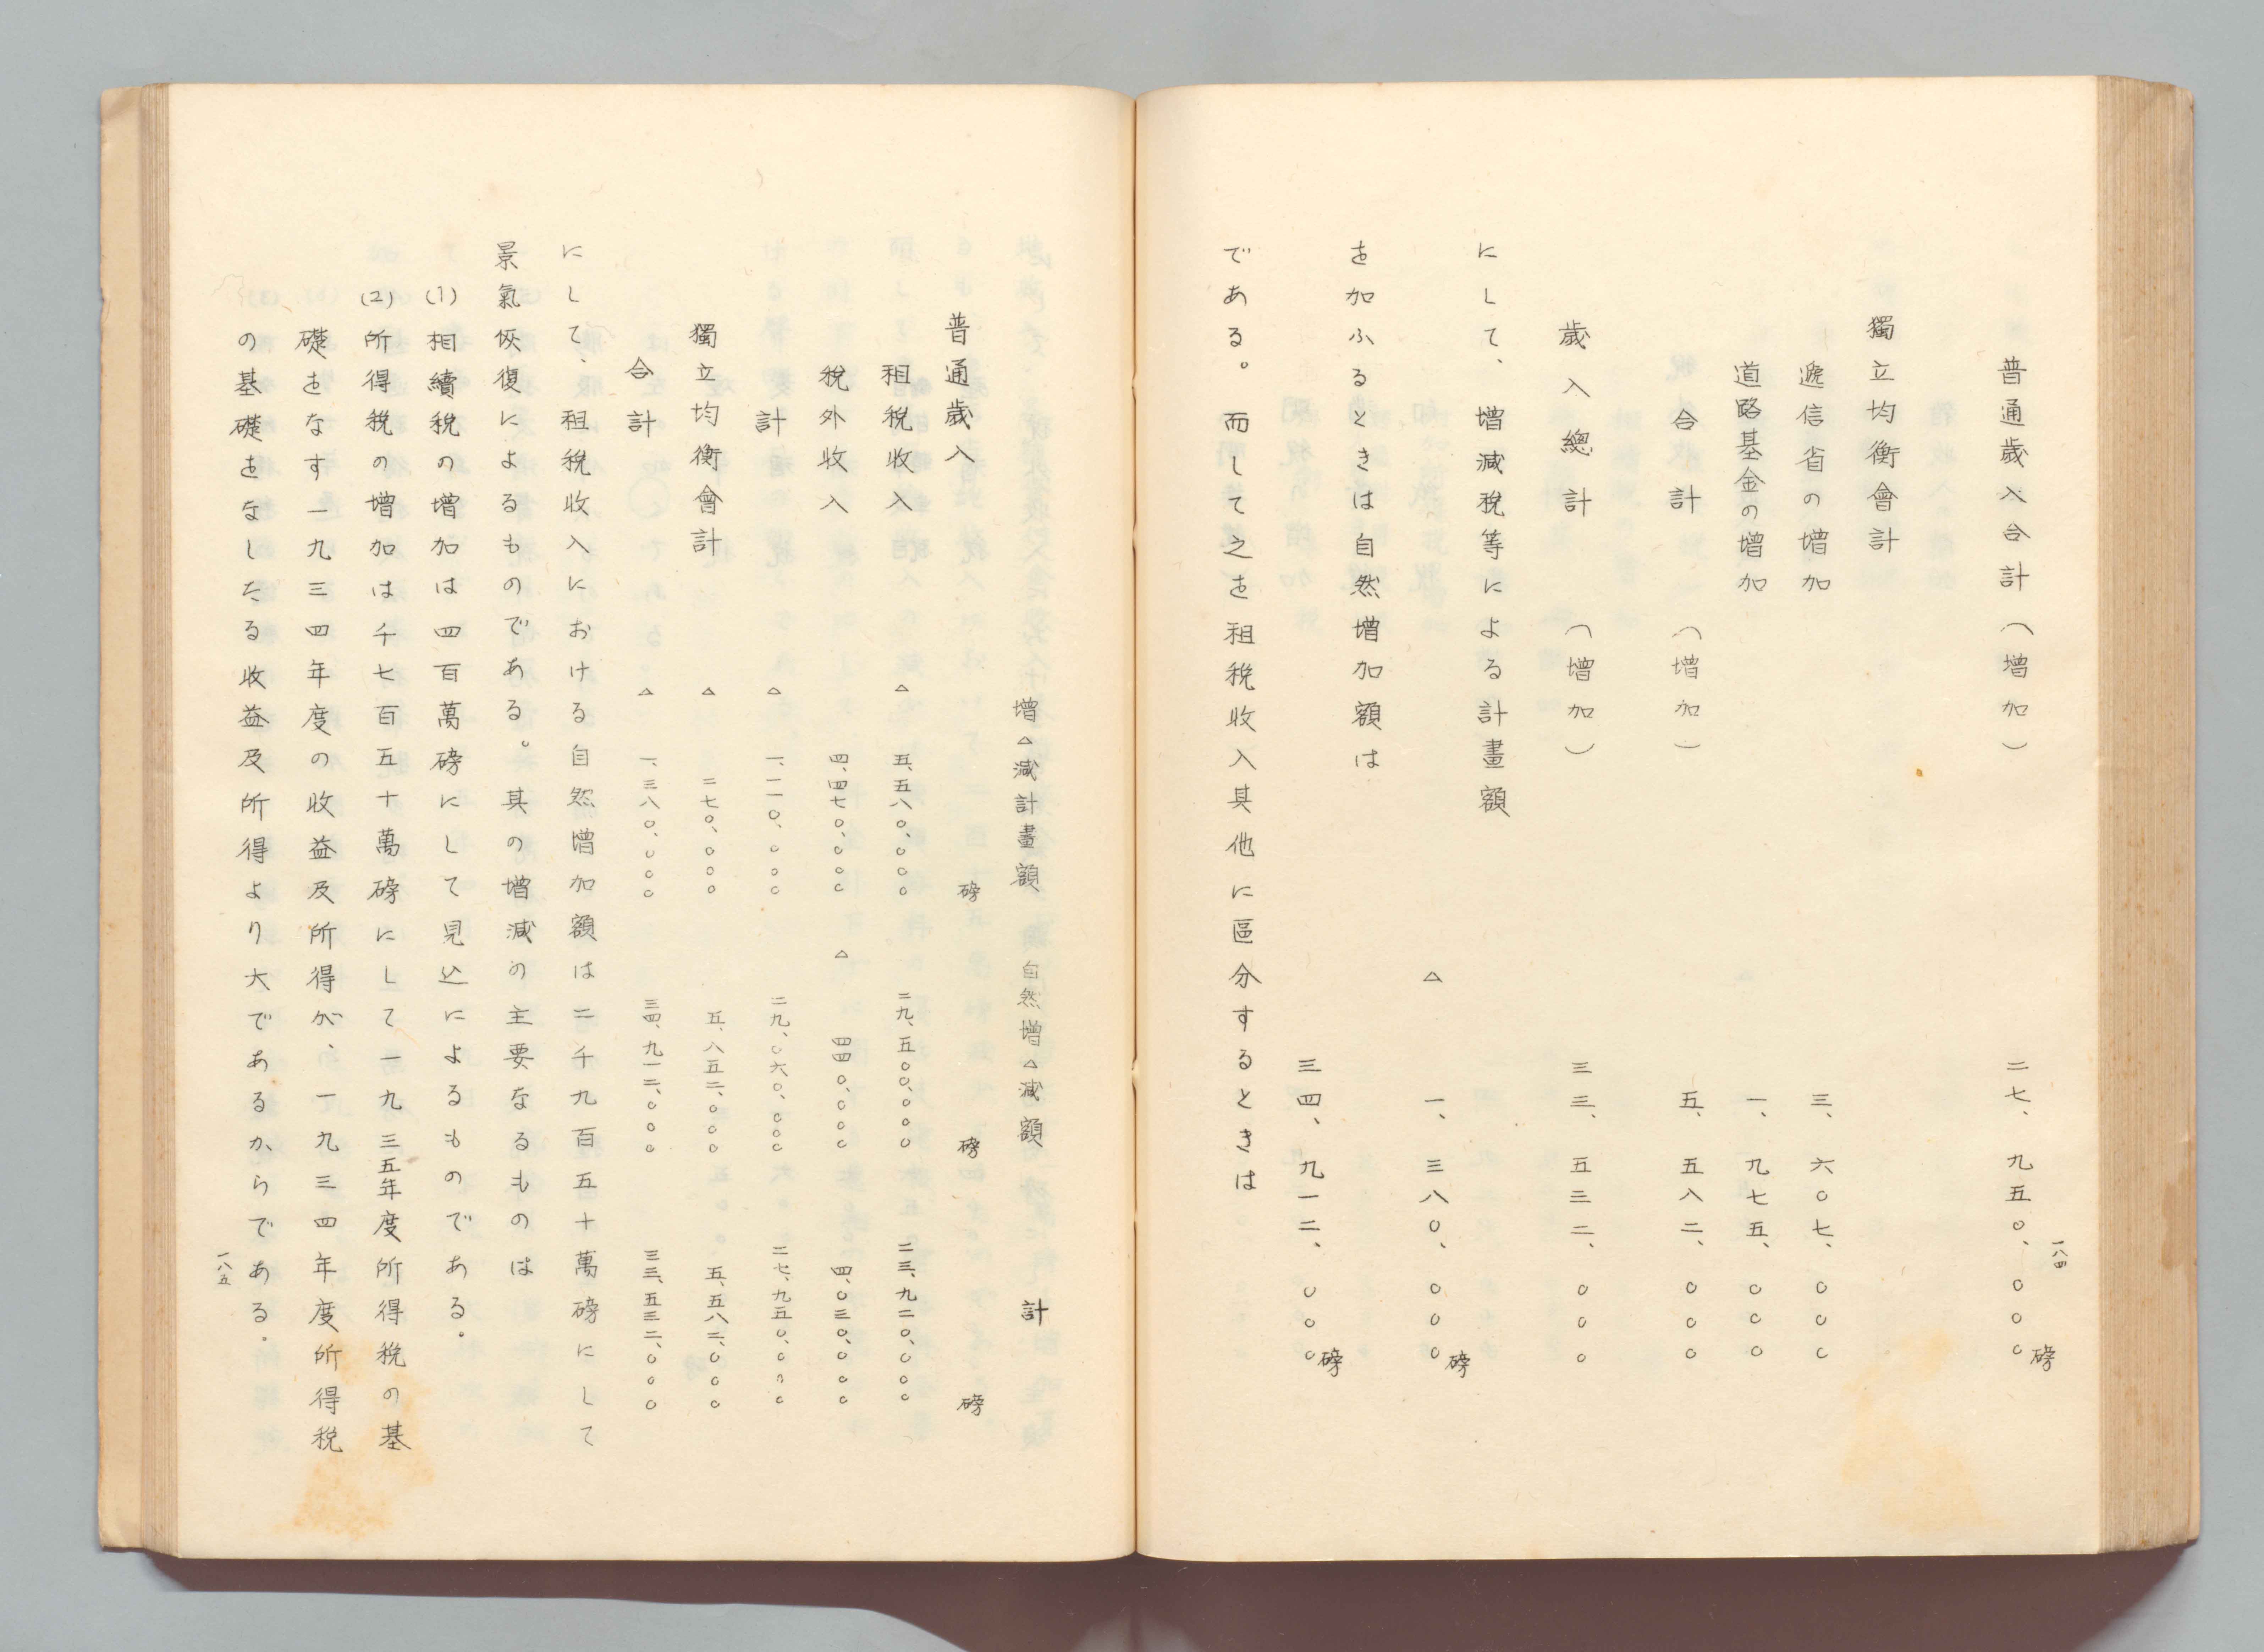 普通歳入合計（増加）　二七、九五〇、〇〇〇磅
獨立均衡會計
遞信省の増加　三、六〇七、〇〇〇
道路基金の増加　一、九七五、〇〇〇
合計（増加）　五、五八二、〇〇〇
歳入總計（増加）　三三、五三二、〇〇〇
にして、増減税等による計畫額
△一、三八〇、〇〇〇磅
を加ふるときは自然増加額は
三四、九一二、〇〇〇磅
である。而して之を租税收入其他に區分するときは
一八四
増△減計畫額　自然増△減額　計
普通歳入　磅　磅　磅
租税收入　△五、五八〇、〇〇〇　二九、五〇〇、〇〇〇　二三、九二〇、〇〇〇
税外收入　四、四七〇、〇〇〇　△四四〇、〇〇〇　四、〇三〇、〇〇〇
計　△一、一一〇、〇〇〇　二九、〇六〇、〇〇〇　二七、九五〇、〇〇〇
獨立均衡會計　△二七〇、〇〇〇　五、八五二、〇〇〇　五、五八二、〇〇〇
合計　△一、三八〇、〇〇〇　三四、九一二、〇〇〇　三三、五三二、〇〇〇
にして、租税收入における自然増加額は二千九百五十萬磅にして
景氣恢復によるものである。其の増減の主要なるものは
(1)相續税の増加は四百萬磅にして見込によるものである。
(2)所得税の増加は千七百五十萬磅にして一九三五年度所得税の基
礎をなす一九三四年度の收益及所得が、一九三四年度所得税
の基礎をなしたる收益及所得より大であるからである。
一八五